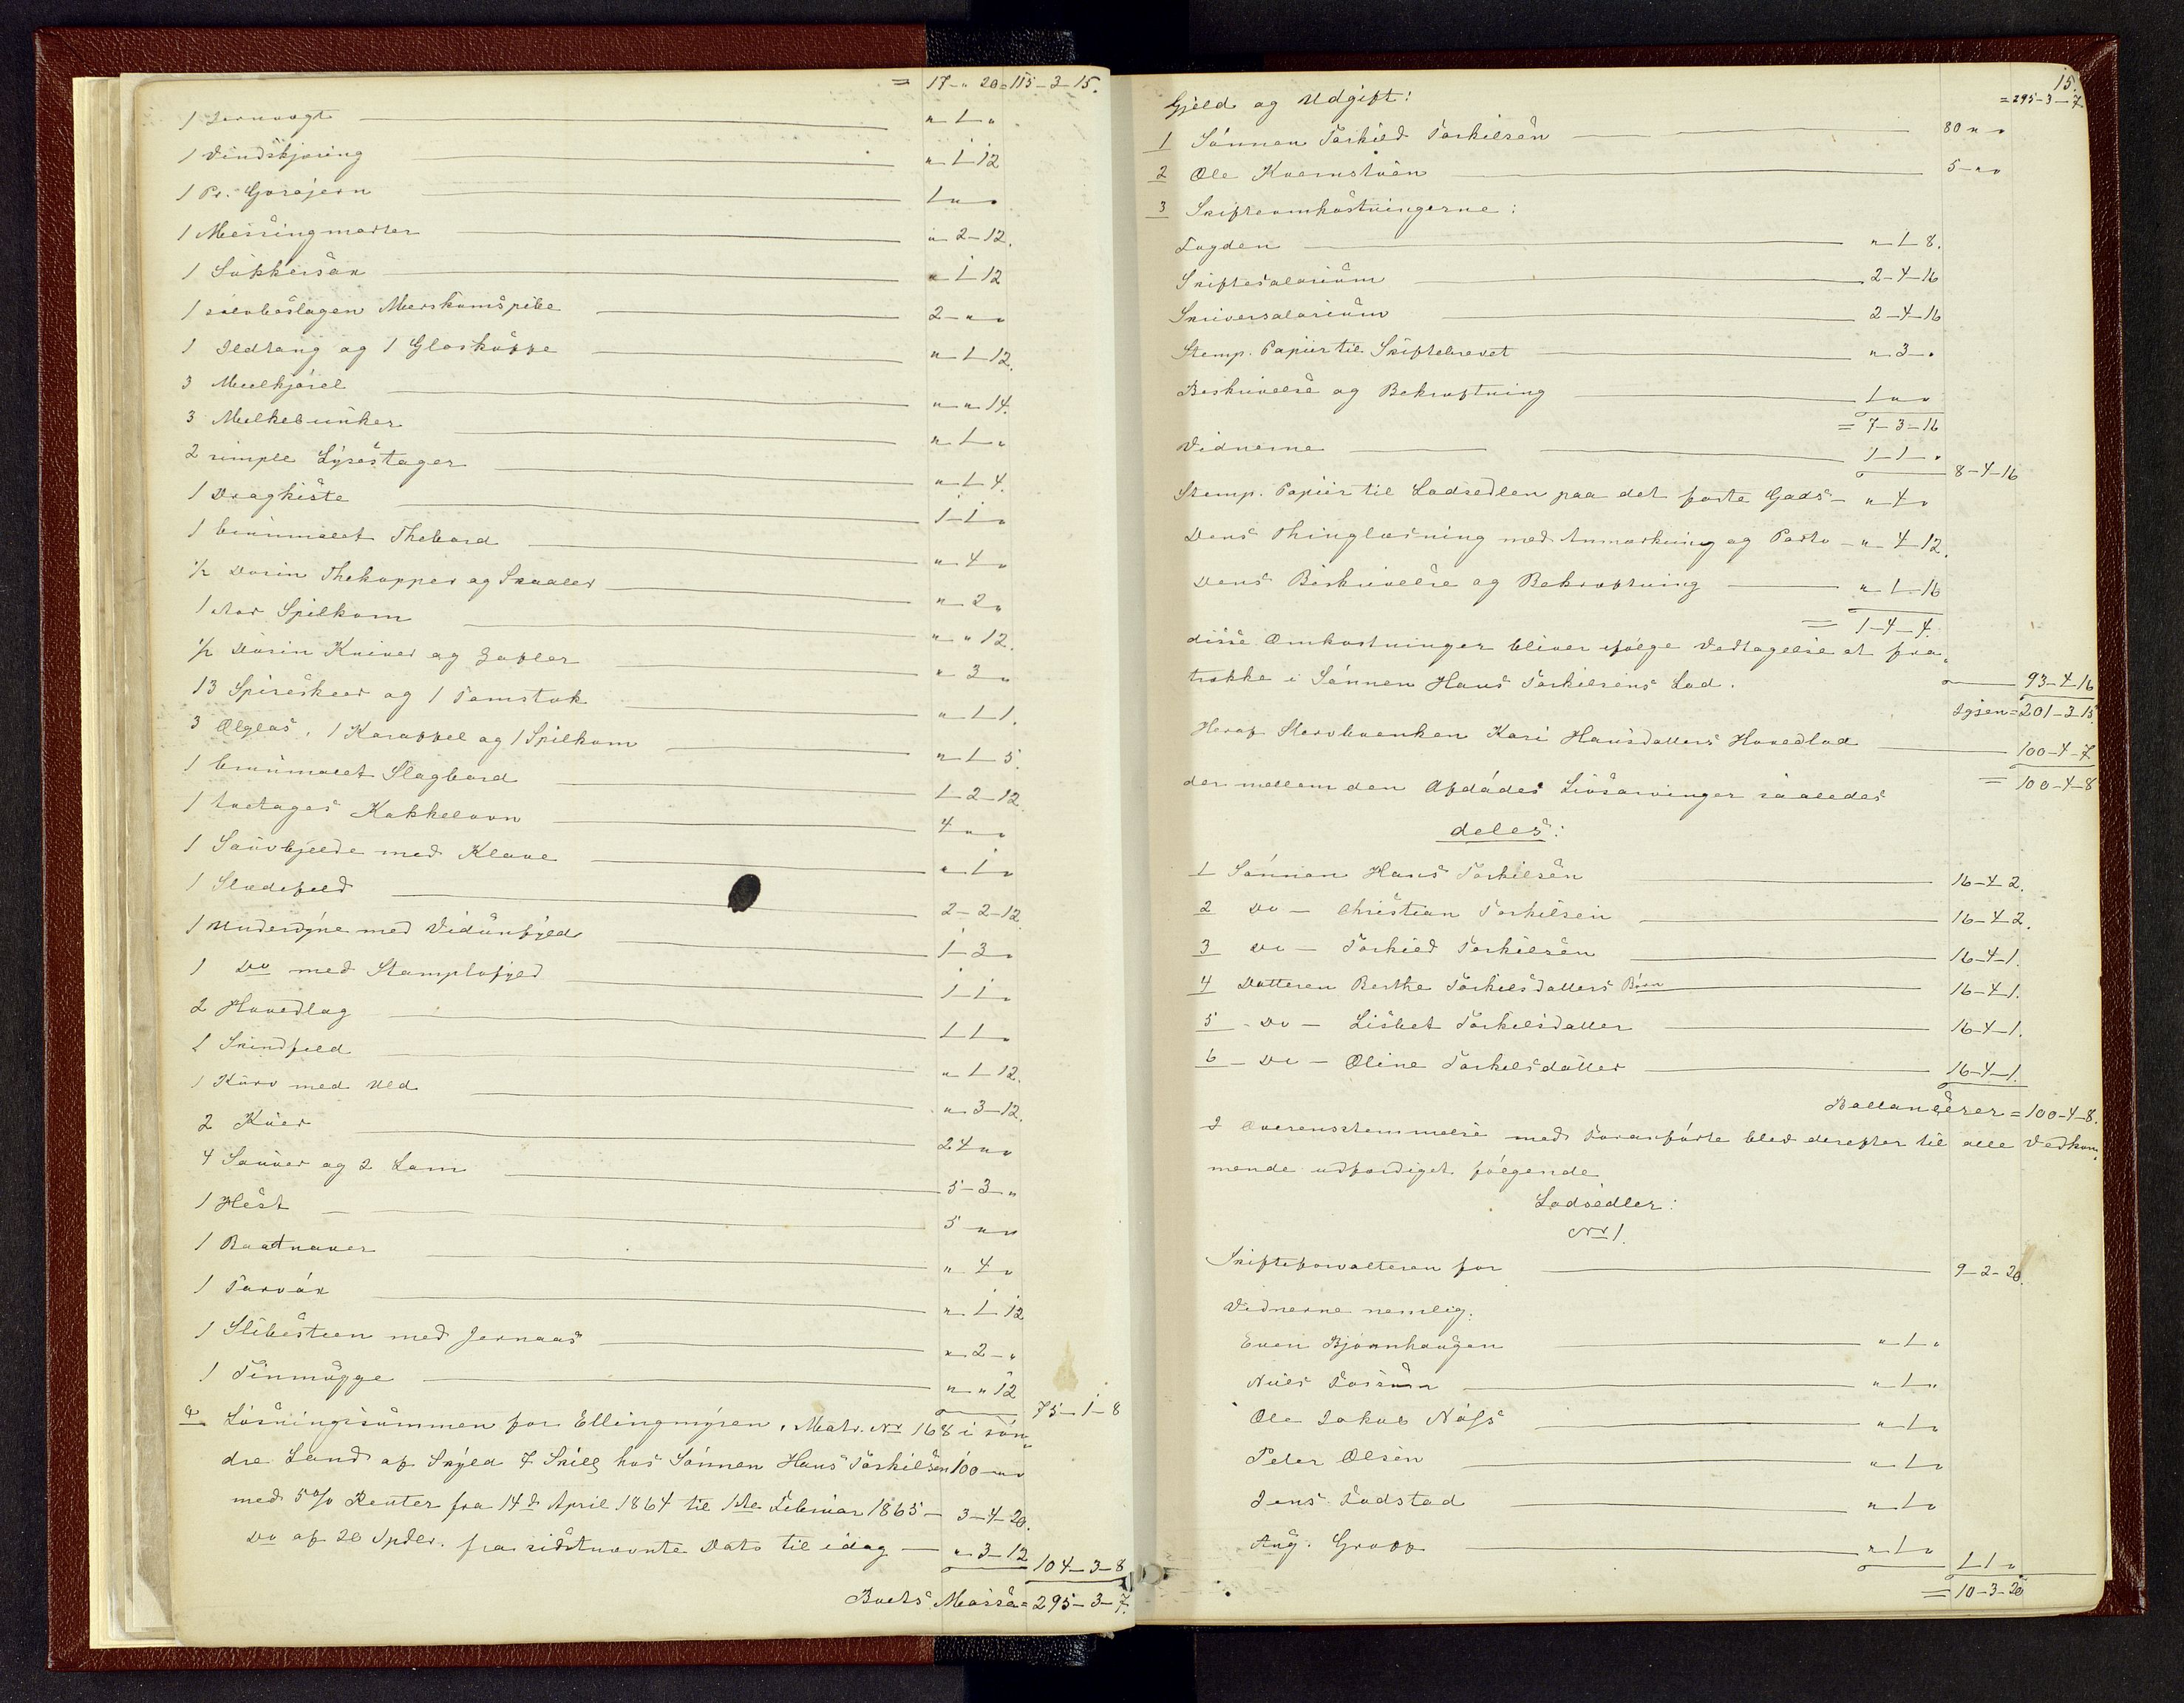 = 17 - " 20 = 115 - 3 - 15.
1 Jernvægt " 1 "
1 Vindskjæring " 1 12
1 Pr. Gorojern 1 " "
1 Messingmorter " 2 - 12.
1 Sukkersax " 1 12
1 sølvbeslagen Merskumspibe 2 - " "
1 Ildtang og 1 Glaskuppe " 1 12.
3 Meelkjørel " " 14.
3 Melkebunker " 1 "
2 simple Lysestager " 1 4.
1 Dragkiste 1 - 1 "
1 brunmalet Thebord " 4 "
1/2 Dusin Thekopper og Skaaler " 2 "
1 stor Spilkom " " 12.
1/2 Dusin Kniver og Gafler " 3 "
13 Spiseskeer og 1 Tomstok " 1 1.
3 Ølglas, 1 Karaffel og 1 Spilkom " 1 5.
1 brunmalet Slagbord 1 - 2 - 12.
1 toetages Kakkelovn 4 " "
1 Sauvbjelde med Klave " 1 "
1 Sladefeld 2 - 2 - 12.
1 Underdyne med Viduunfyld 1 - 3 "
1 Do med Stamplofyld 1 - 1 "
2 Hovedlag 1 1 "
1 Skindfeld " 1 12.
1 Kurv med Uld " 3 - 12.
2 Kuer 24 " "
4 Sauver og 2 Lam 5 - 3 - "
1 Hest 5 " "
1 Baatnaver " 4 "
1 Tarvøx " 1 12
1 Slibesteen med Jernaas " 2 - "
1 Tinmugge " " 12 75 - 1 - 8
Løsningssummen for Ellingmyren, Matr. No 168 i søn-
dre Land af Skyld 7 Skill hos Sønnen Hans Torkilsen 100 - " "
med 5 % Renter fra 14de April 1864 til 1ste Februar 1865 - 3 - 4 - 20.
Do af 20 Spdlr. fra sidstnævnte Dato til idag - " 3 - 12 104 - 3 - 8
Boets Massa = 295 - 3 - 7.
15.
Gjeld og Udgift: = 295 - 3 - 7
1 Sønnen Torkild Torkilsen 80 " "
2 Ole Kvernstuen 5 - " "
3 Skifteomkostningerne:
Fogden " 1 8.
Skiftesalarium 2 - 4 - 16
Skriversalarium 2 - 4 - 16
Stemp. Papiir til Skiftebrevet " 3 - "
Beskrivelse og Bekræftning 1 " "
= 7 - 3 - 16
Vidnerne 1 - 1 - " 8 - 4 - 16
Stemp. Papiir til Lodsedlen paa det faste Gods - " 4 "
Dens Thinglæsning med Anmærkning og Porto - " 4 12.
Dens Beskrivelse og Bekræftning " 1 - 16
= 1 - 4 - 4.
disse Omkostninger bliver ifølge Vedtagelse at fra-
trække i Sønnen Hans Torkilsens Lod. 93 - 4 - 16
Igjen = 201 - 3 - 15.
Heraf Stervboenken Kari Hansdatters Hovedlod 100 - 4 - 7
der mellem den Afdødes Livsarvinger saaledes = 100 - 4 - 8
deles:
1 Sønnen Hans Torkilsen 16 - 4 2.
2 Do - Christian Torkilsen 16 - 4 2.
3 Do - Torkild Torkilsen 16 - 4 - 1.
4 Datteren Berthe Torkilsdatters Børn 16 - 4 1.
5 - Do - Lisbet Torkelsdatter 16 - 4 - 1.
6 - Do - Oline Torkelsdatter 16 - 4 - 1.
Ballancerer = 100 - 4 - 8.
I Overensstemmelse med Foranførte blev derefter til alle Vedkom-
mende udfærdiget følgende
Lodsedler:
No 1.
Skifteforvalteren for 9 - 2 - 20.
Vidnerne nemlig:
Even Bjørnhaugen " 1 "
Niels " 1 "
Ole Jakob Næss " 1 "
Peter Olsen " 1 "
Jens Fodstad " 1 "
Aug. Gropp " 1 " 1 1 "
= 10 - 3 - 20